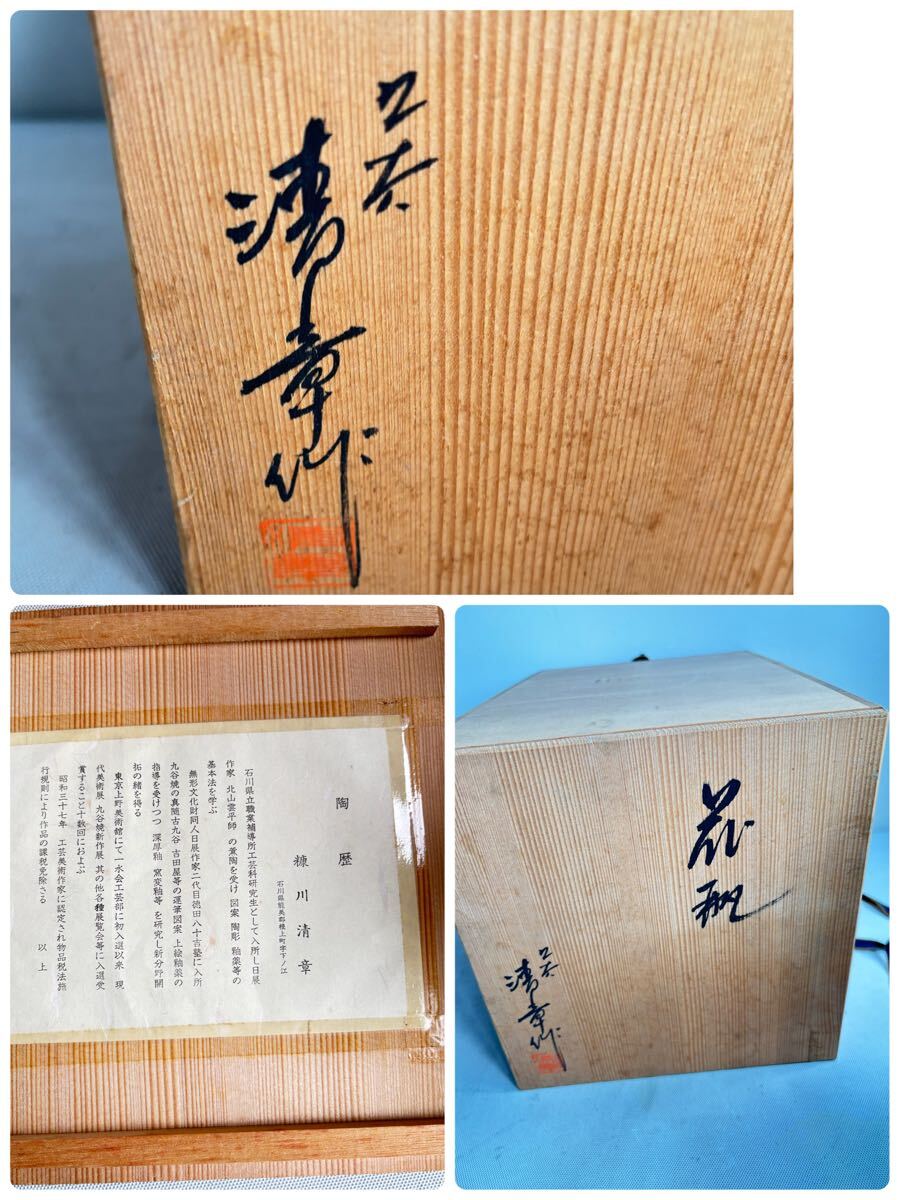 九谷
清章作
陶歴
糠川清章
石川県能美郡種上町字下ノ江
石川県立職業補導所工芸科研究生として入所し日展
作家 北山雲平師 の黄陶を受け 図案 陶彫 釉薬等の
基本法を学ぶ
無形文化財同人日展作家二代目徳田八十吉塾に入所
九谷焼の真随古九谷 吉田屋等の運筆図案 上絵釉薬の
指導を受けつつ 深厚釉 窯変釉等 を研究し新分野開
拓の緒を得る
東京上野美術館にて一水会工芸部に初入選以来 現
代美術展 九谷焼新作展 其の他各種展覧会等に入選受
賞すること十数回におよぶ
昭和三十七年 工芸美術作家に認定され物品税法施
行規則により作品の課税免除さる
以上
花瓶
九谷
清章作